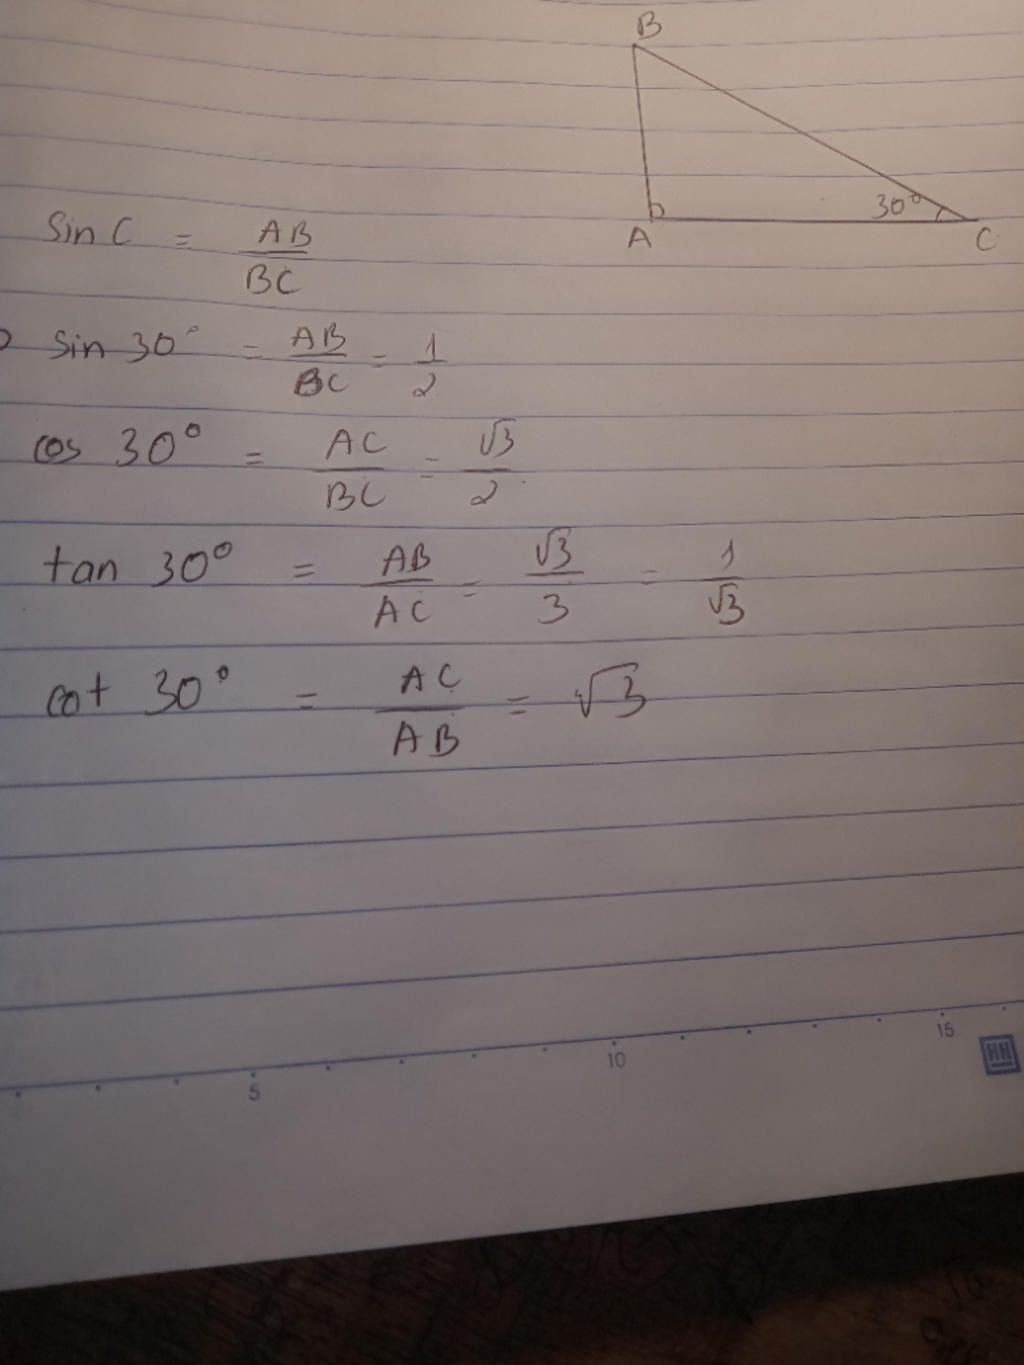 B
30°
A
C
Sin C = AB/BC
sin 30° = AB/BC = 1/2
cos 30° = AC/BC = √3/2
tan 30° = AB/AC = √3/3 = 1/√3
cot 30° = AC/AB = √3
5 10 15
HH